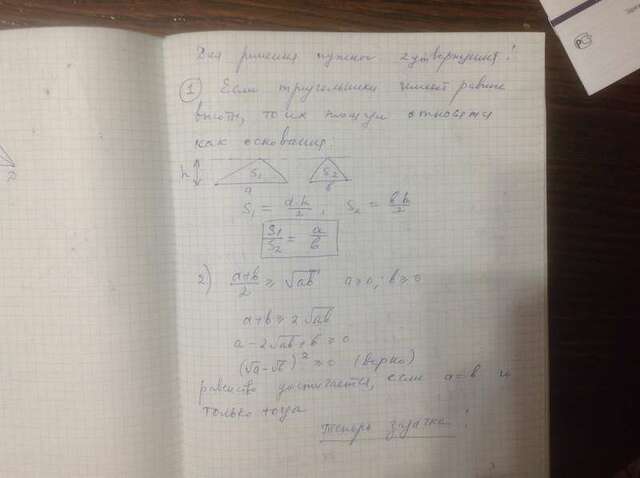 Для решения нужно 2 утверждения!
1 Если треугольники имеют равные
высоты, то их площади относятся
как основания.
h S1 a S2 b
S1 = a·h/2, S2 = b h/2
S1/S2 = a/b
2) a+b/2 ≥ √ab a ≥ 0, b ≥ 0
a+b ≥ 2√ab
a - 2√ab + b ≥ 0
(√a - √b)² ≥ 0 (верно)
равенство достигается, если a = b и
только тогда
Теперь задачка!